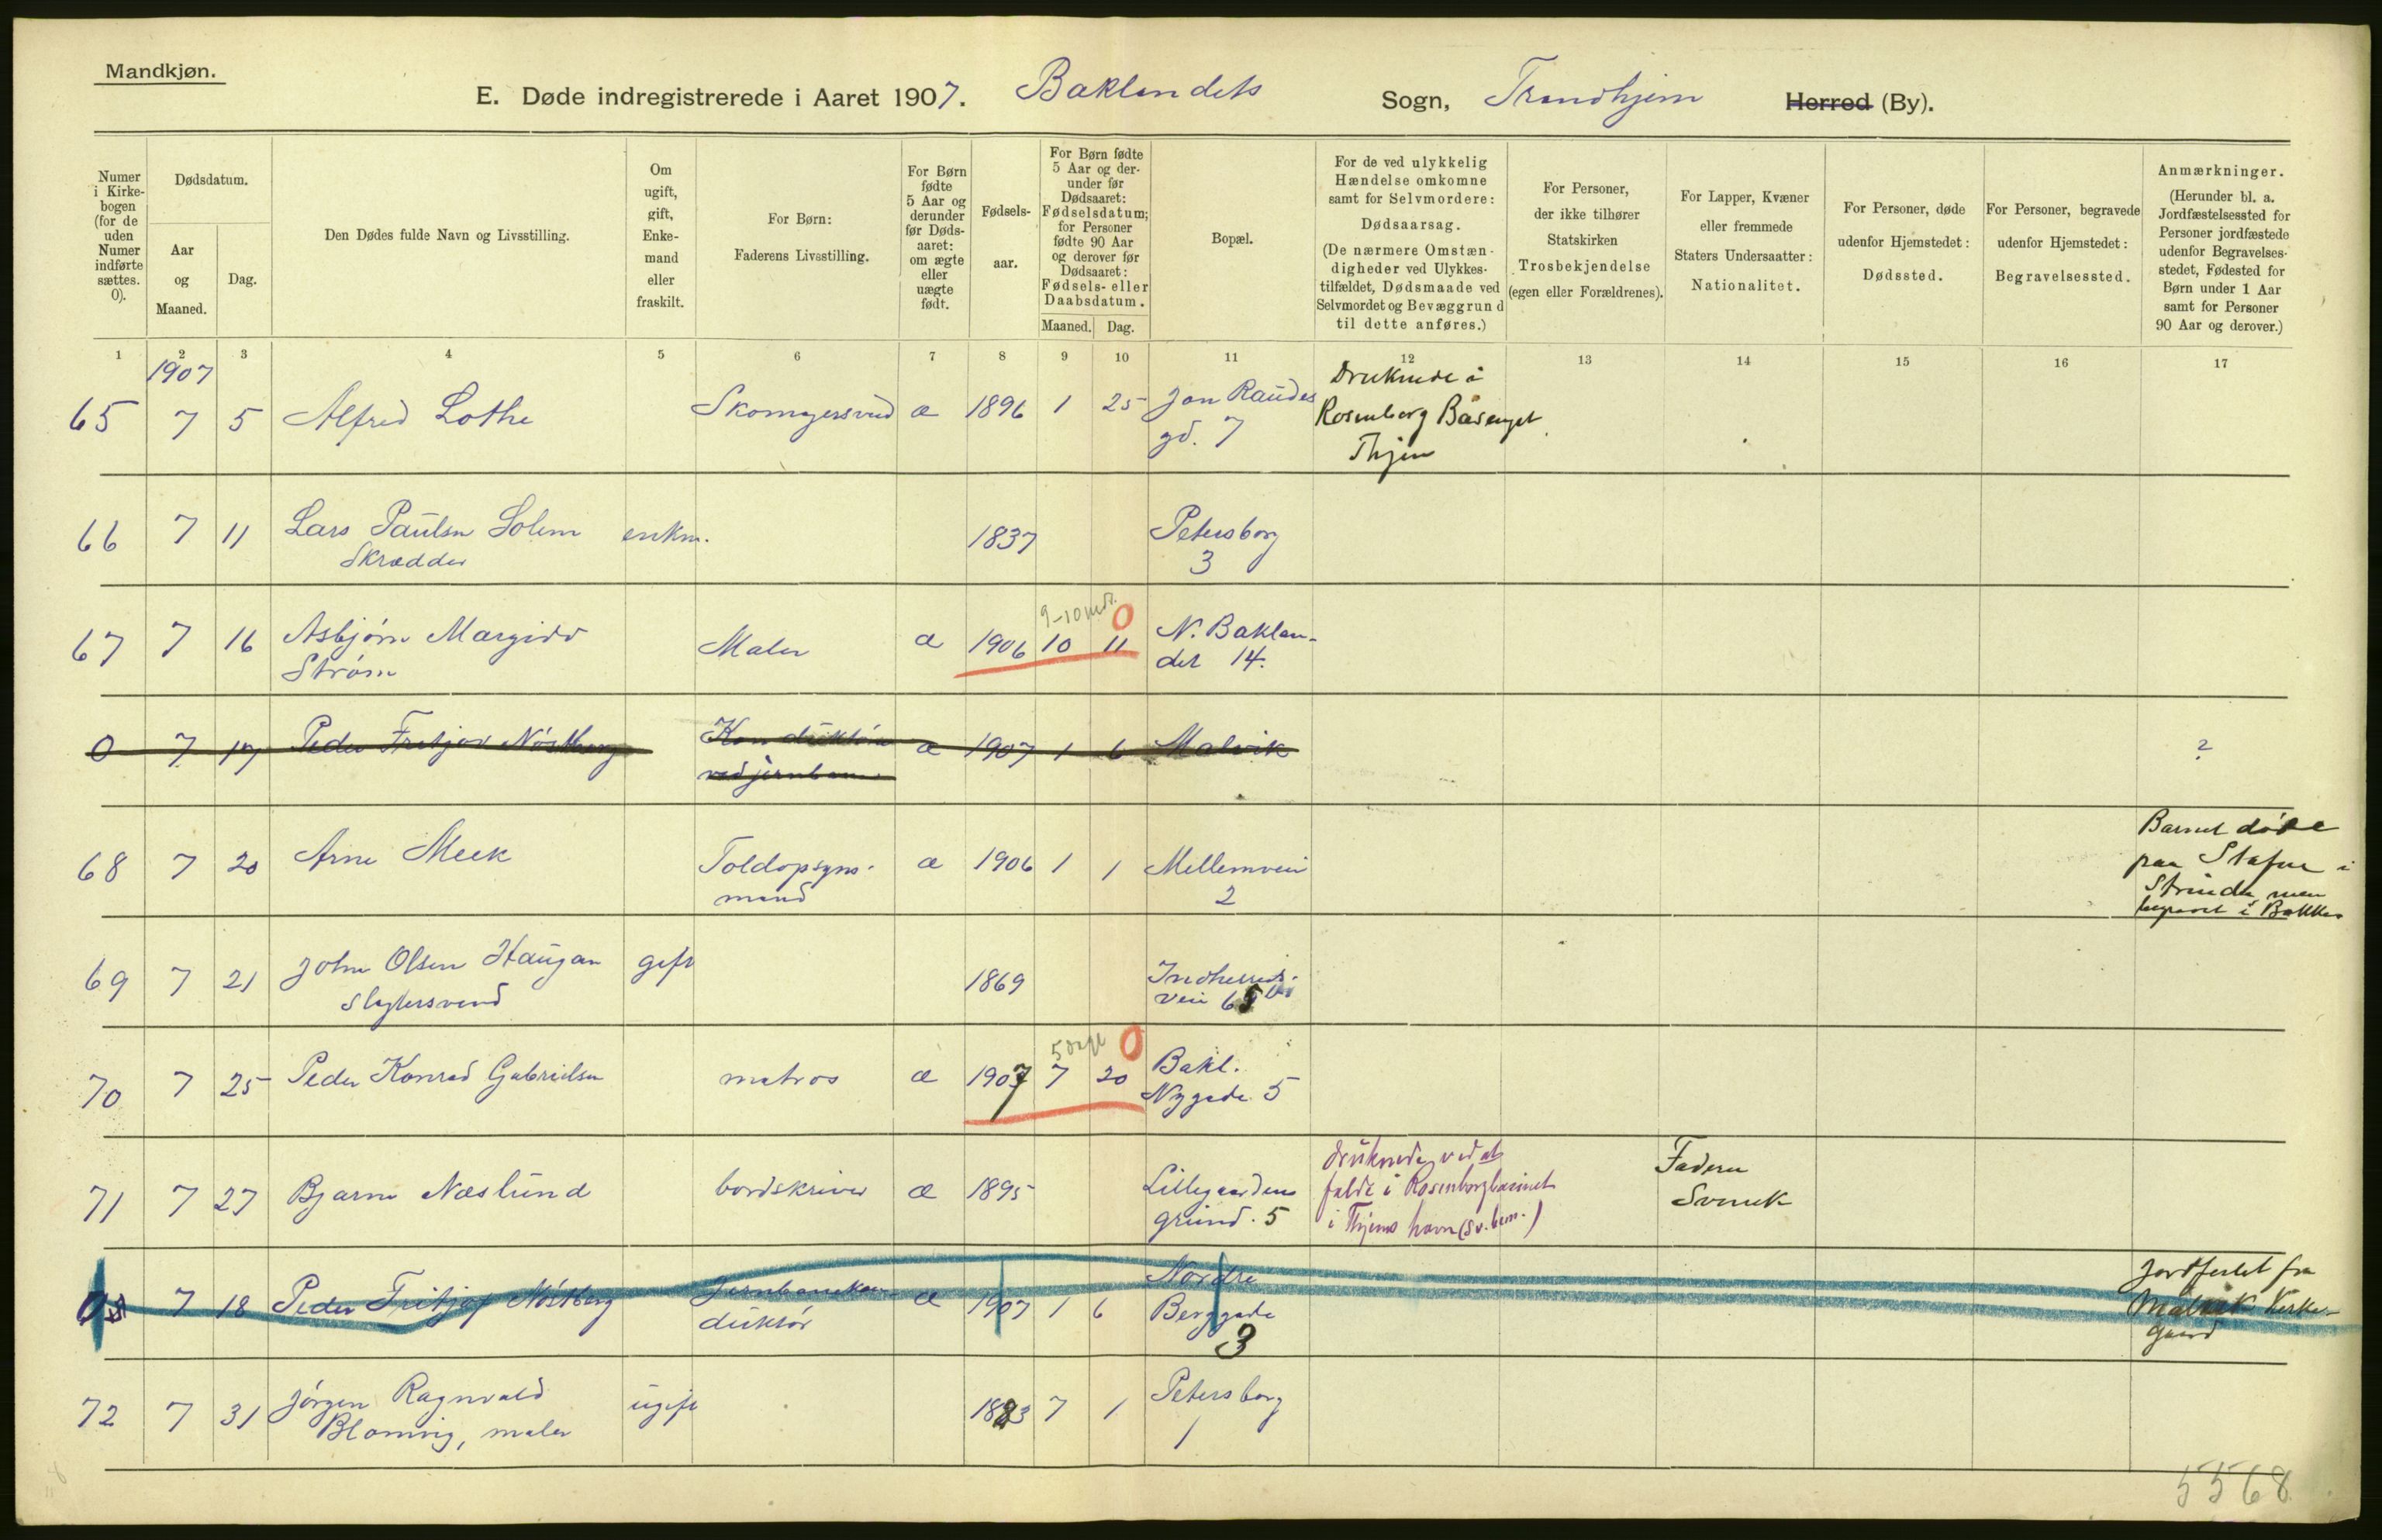 Mandkjøn.
E. Døde indregistrerede i Aaret 1907. Baklandets Sogn, Trondhjem Herred (By).
Numer i Kirke-bogen (for de uden Numer indførte sættes. 0).
Dødsdatum.
Aar og Maaned.
Dag.
Den Dødes fulde Navn og Livsstilling.
Om ugift, gift, Enke-mand eller fraskilt.
For Børn: Faderens Livsstilling.
For Børn fødte 5 Aar og derunder før Døds-aaret: om ægte eller uægte født.
Fødsels-aar.
For Børn fødte 5 Aar og der-under før Dødsaaret: Fødselsdatum; for Personer fødte 90 Aar og derover før Dødsaaret: Fødsels- eller Daabsdatum.
Maaned. Dag.
Bopæl.
For de ved ulykkelig Hændelse omkomne samt for Selvmordere: Dødsaarsag. (De nærmere Omstæn-digheder ved Ulykkes-tilfældet, Dødsmaade ved Selvmordet og Bevæggrund til dette anføres.)
For Personer, der ikke tilhører Statskirken Trosbekjendelse (egen eller Forældrenes).
For Lapper, Kvæner eller fremmede Staters Undersaatter: Nationalitet.
For Personer, døde udenfor Hjemstedet: Dødssted.
For Personer, begravede udenfor Hjemstedet: Begravelsessted.
Anmærkninger. (Herunder bl. a. Jordfæstelsessted for Personer jordfæstede udenfor Begravelses-stedet, Fødested for Børn under 1 Aar samt for Personer 90 Aar og derover.)
1 2 3 4 5 6 7 8 9 10 11 12 13 14 15 16 17
1907
65 7 5 Alfred Lothe Skomagersvend æ 1896 1 25 Jon Raudes
gd. 7
Druknede i
Rosenborg Basenget
Thjem
66 7 11 Lars Paulsen Solem enkm. 1837 Petersborg
Skrædder 3
9-10 mdr. 0
67 7 16 Asbjørn Margido Maler æ 1906 10 11 N. Baklan-
Strøm det 14.
0 7 17 Peder Fritjov Nöstberg Konduktör æ 1907 1 6 Malvik ?
ved jernban.
68 7 20 Arne Meek Toldopsyns- æ 1906 1 1 Mellemveien
mand 2
Barnet døde
paa Stafne i
Strinda men
begravet i Bakke
69 7 21 John Olsen Haugan gift 1869 Indherreds-
Slagtersvend vei 65
5 dage 0
70 7 25 Peder Konrad Gabrielsen matros æ 1907 7 20 Bakl.
Nygade 5
71 7 27 Bjarne Næslund bordskriver æ 1895 Lillegaardens
grund. 5
druknede ved at
falde i Rosenborgbasinet
i Thjems havn (sv. bem.)
Faderen
Svensk
0 7 18 Peder Fritjof Nöstberg Jernbanekon- æ 1907 1 6 Nordre
duktör Berggade
3
Jordfestet fra
Malvik Kirke-
gaard
72 7 31 Jörgen Ragnvald ugift 1883 7 1 Petersborg
Blomvig, maler 1
5568